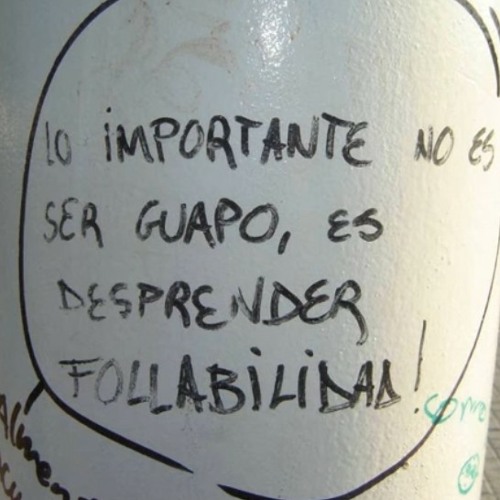 lo iMPORTANTE NO ES
SER GUAPO, ES
DESPRENDER
FOLLABiLiDAD!